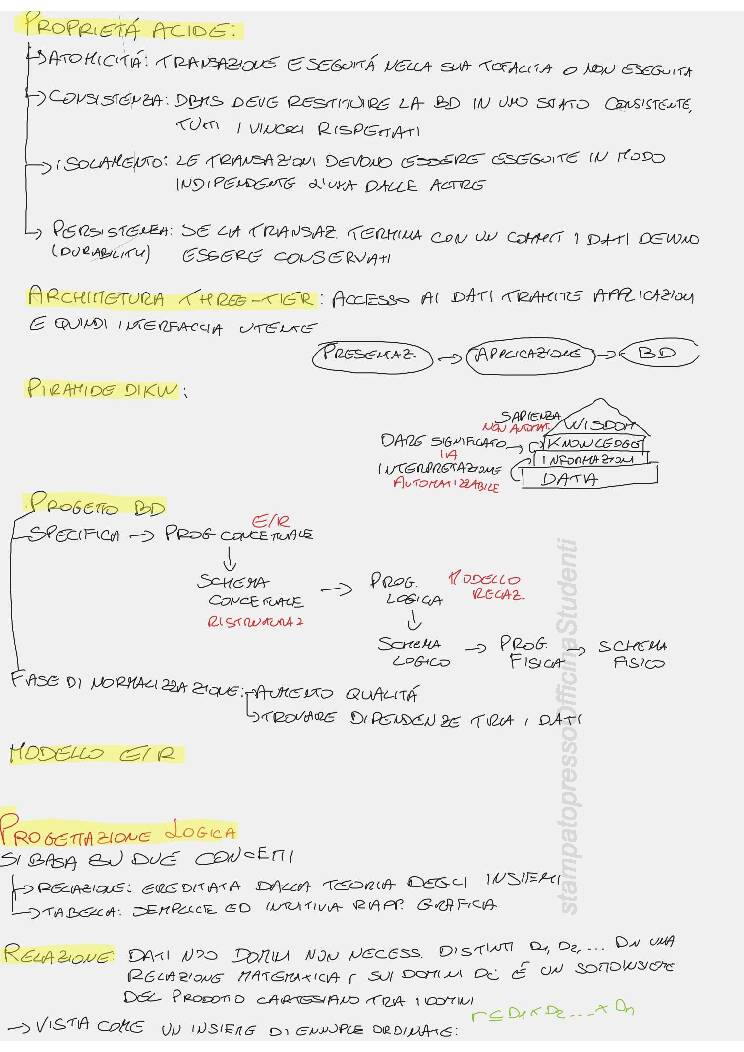 PROPRIETÁ ACIDE:
→ ATOMICITÁ: TRANSAZIONE ESEGUITÁ NELLA SUA TOTALITA O NON ESEGUITA
→ CONSISTENZA: DBMS DEVE RESTITUIRE LA BD IN UNO STATO CONSISTENTE,
TUTTI I VINCOLI RISPETTATI
→ ISOLAMENTO: LE TRANSAZIONI DEVONO ESSERE ESEGUITE IN MODO
INDIPENDENTE L'UNA DALLE ALTRE
→ PERSISTENZA: SE LA TRANSAZ. TERMINA CON UN COMMIT I DATI DEVONO
(DURABILITY) ESSERE CONSERVATI
ARCHITETTURA THREE-TIER: ACCESSO AI DATI TRAMITE APPLICAZIONI
E QUINDI INTERFACCIA UTENTE
PRESENTAZ. → APPLICAZIONE → BD
PIRAMIDE DIKW:
SAPIENZA
NON AUTOMAT. WISDOM
DARE SIGNIFICATO → KNOWLEDGE
IA INFORMAZIONI
INTERPRETAZIONE DATA
AUTOMATIZZABILE
PROGETTO BD
E/R
SPECIFICA → PROG CONCETTUALE
↓
SCHEMA → PROG. MODELLO
CONCETTUALE LOGICA RELAZ.
RISTRUTTURAZ ↓
SCHEMA → PROG. → SCHEMA
LOGICO FISICA FISICO
FASE DI NORMALIZZAZIONE: → AUMENTO QUALITÁ
→ TROVARE DIPENDENZE TRA I DATI
MODELLO E/R
PROGETTAZIONE LOGICA
SI BASA SU DUE CONCETTI
→ RELAZIONE: EREDITATA DALLA TEORIA DEGLI INSIEMI
→ TABELLA: SEMPLICE ED INTUITIVA RAPP. GRAFICA
RELAZIONE: DATI N>0 DOMINI NON NECESS. DISTINTI D1, D2, ... DN UNA
RELAZIONE MATEMATICA r SUI DOMINI Di É UN SOTTOINSIEME
DEL PRODOTTO CARTESIANO TRA I DOMINI
r ⊆ D1 × D2 ... × Dn
→ VISTA COME UN INSIEME DI ENNUPLE ORDINATE:
stampatopressoOfficinaStudenti